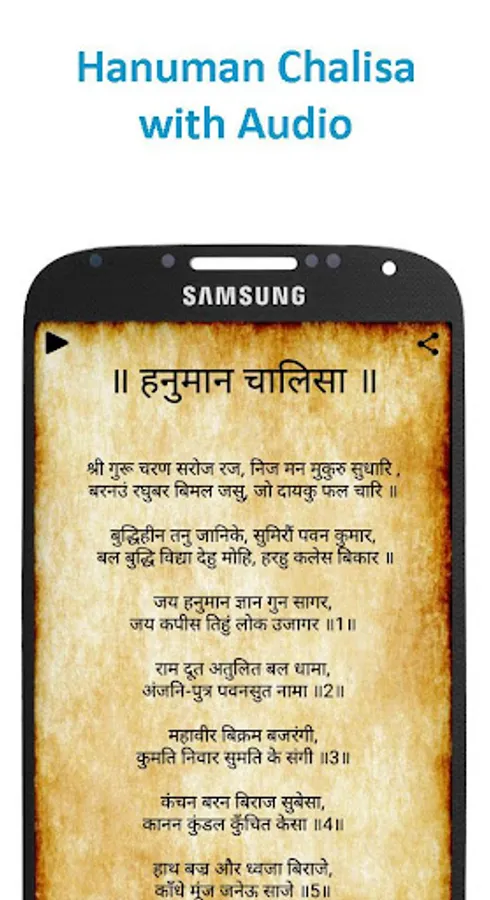 Hanuman Chalisa
with Audio
SAMSUNG
॥ हनुमान चालिसा ॥
श्री गुरू चरण सरोज रज, निज मन मुकुरु सुधारि ,
बरनउं रघुबर बिमल जसु, जो दायकु फल चारि ॥
बुद्धिहीन तनु जानिके, सुमिरौं पवन कुमार,
बल बुद्धि विद्या देहु मोहि, हरहु कलेस बिकार ॥
जय हनुमान ज्ञान गुन सागर,
जय कपीस तिहुं लोक उजागर ॥1॥
राम दूत अतुलित बल धामा,
अंजनि-पुत्र पवनसुत नामा ॥2॥
महावीर बिक्रम बजरंगी,
कुमति निवार सुमति के संगी ॥3॥
कंचन बरन बिराज सुबेसा,
कानन कुंडल कुँचित केसा ॥4॥
हाथ बज्र और ध्वजा बिराजे,
काँधे मूंज जनेऊ साजे ॥5॥